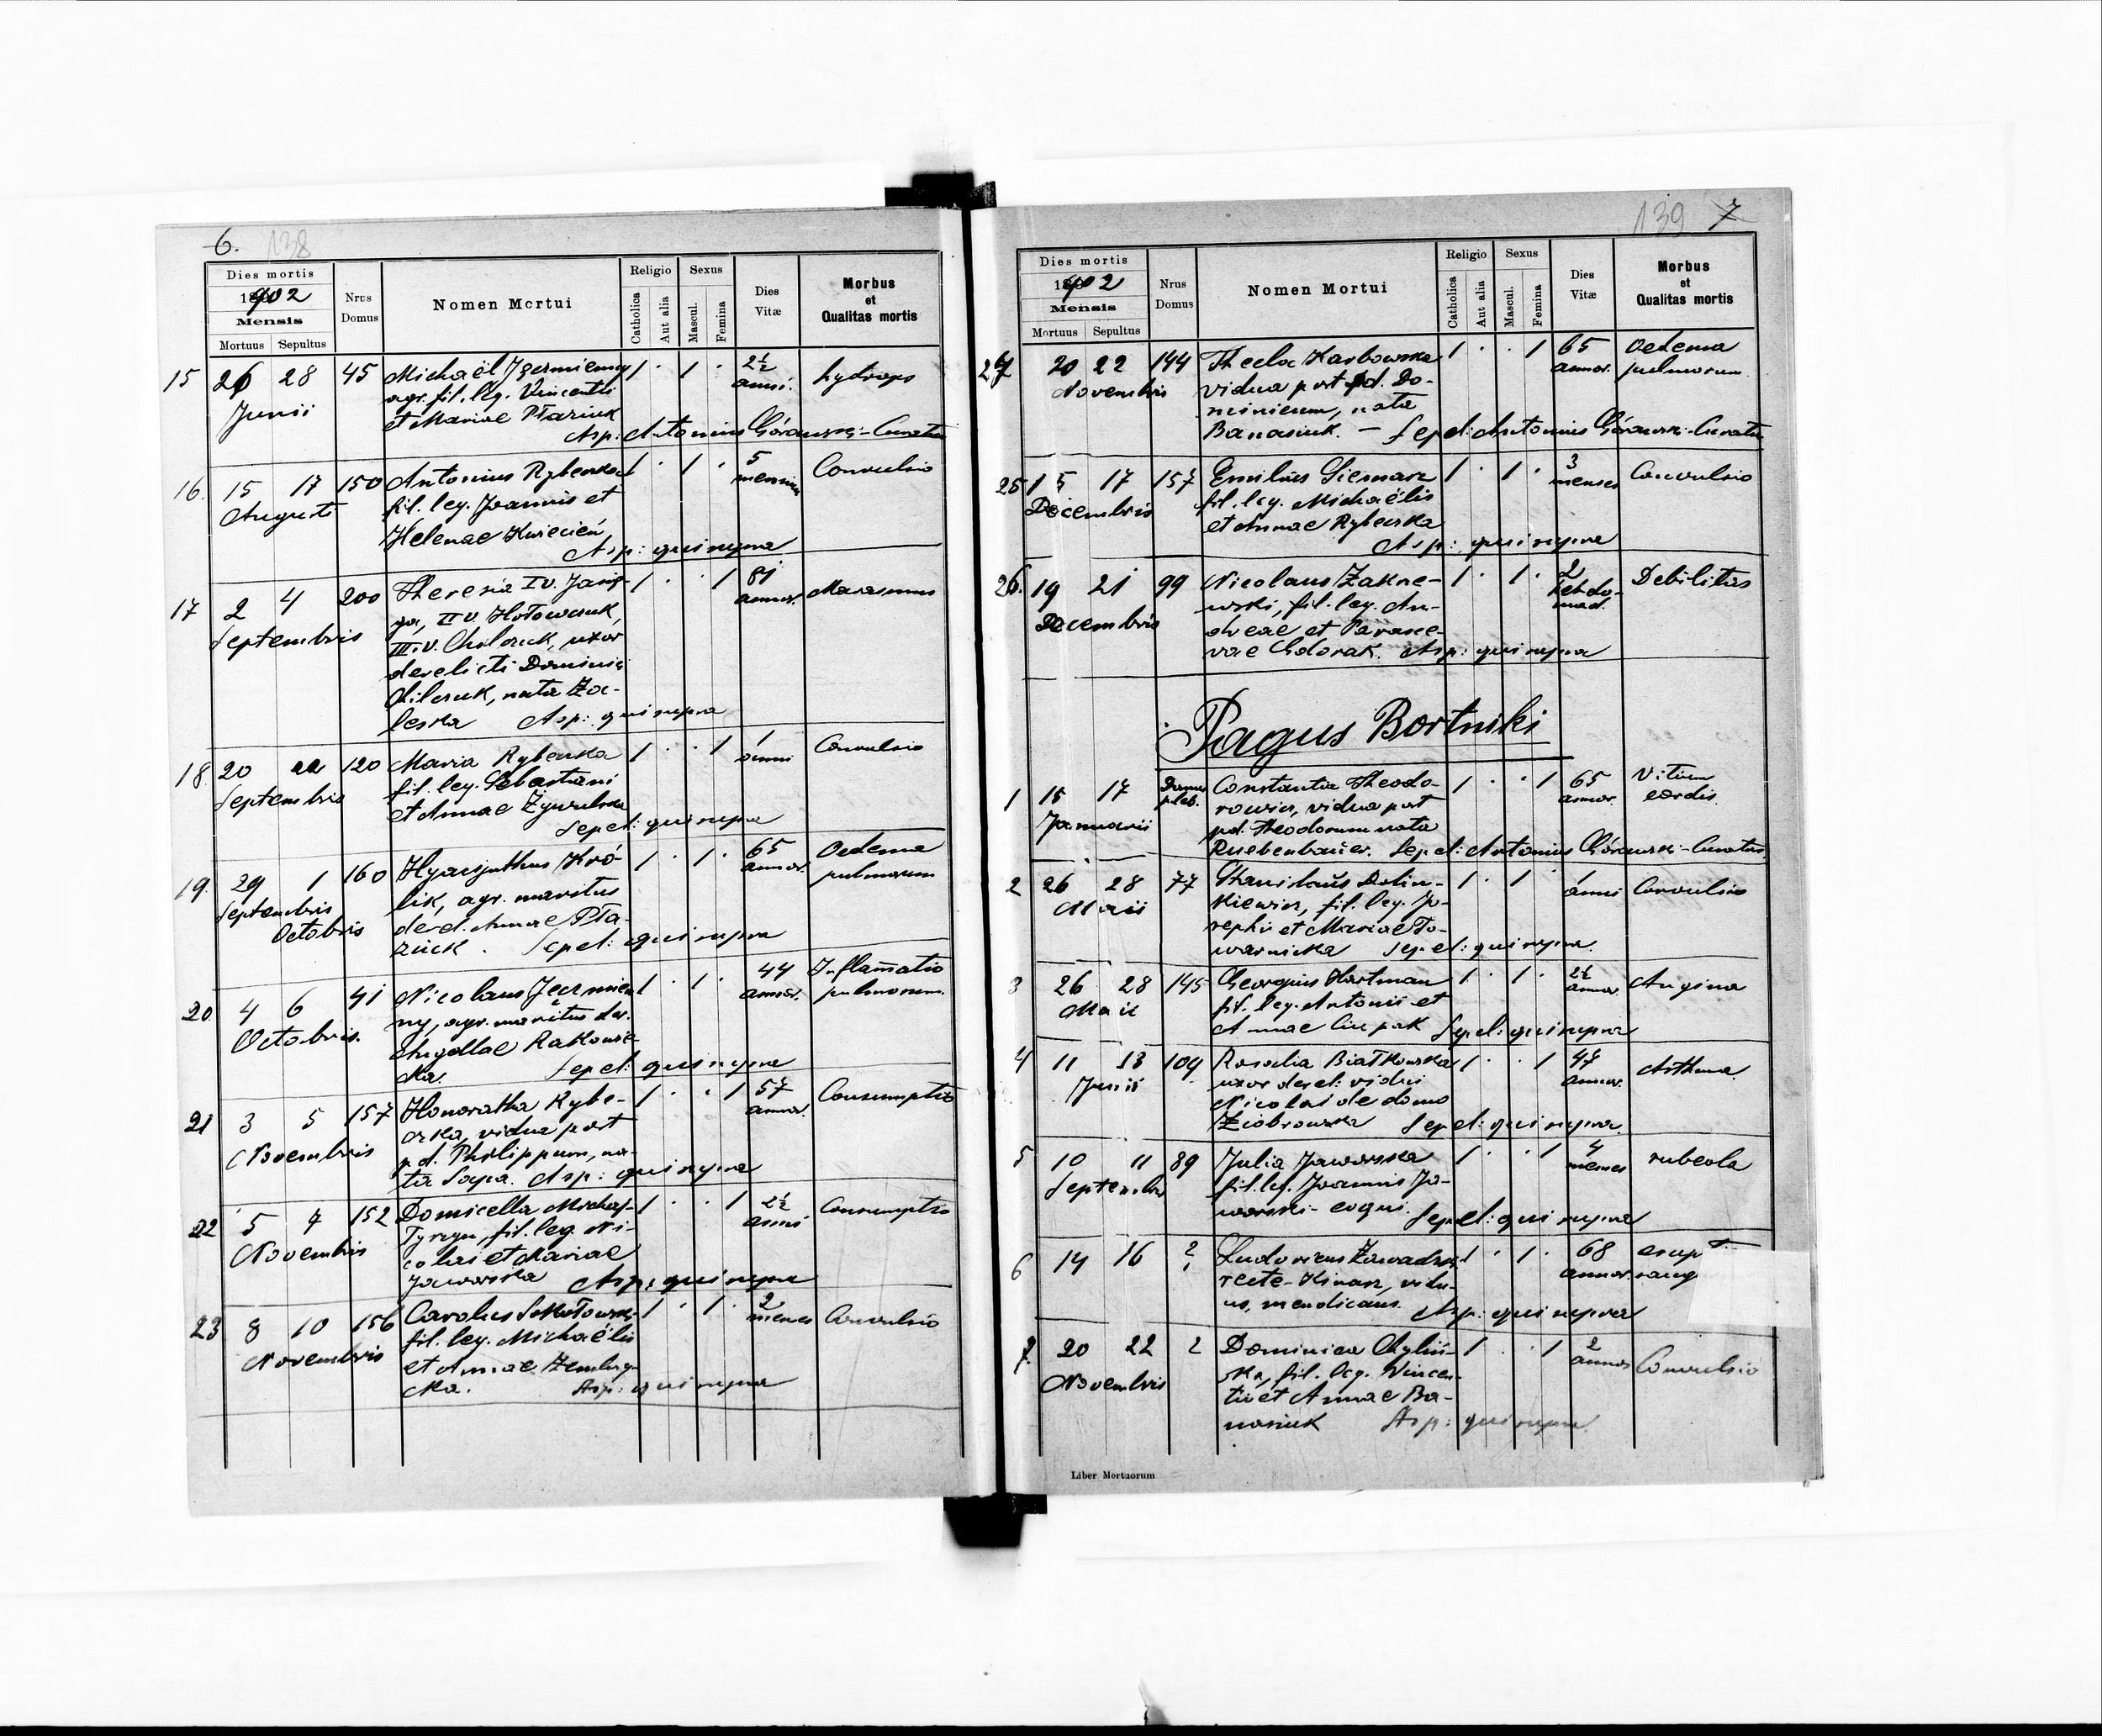 6. 138
Dies mortis
1902
Mensis
Mortuus Sepultus
Nrus Domus
Nomen Mortui
Religio
Catholica
Aut alia
Sexus
Mascul.
Femina
Dies Vitæ
Morbus et Qualitas mortis
15 26 28 45 Michaël 1 . 1 . 2½ hydrops
Junii agr. fil. leg. Vincentii anni.
et Mariae Ptaziuk
Asp: Antonius Górawski - Curatus
16. 15 17 150 Antonius Rybencka 1 . 1 . 5 Convulsio
Augusti fil. leg. Joannis et mensium
Helenae Kwiecień
Asp: qui supra
17 2 4 200 Theresia IV. 1 . . 1 81 Marasmus
Septembris II v. annor.
III. v. uxor
derelicti Dominici
nata Za-
leska Asp: qui supra
18. 20 22 120 Maria 1 . . 1 1 Convulsio
Septembris fil. leg. Sebastiani anni
et Annae
Sepel: qui supra
19. 29 1 160 Hyacynthus Kró- 1 . 1 . 65 Oedema
Septembris lik, agr. maritus annor. pulmorum
Octobris derel. Annae Pta-
ziuk. Sepel: qui supra
20 4 6 41 Nicolaus Jeczmien- 1 . 1 . 44 Inflam̄atio
Octobris. ny, agr. maritus der. annor. pulmorum.
Rakowie-
cka. Sepel: qui supra
21 3 5 157 Honoratha Rybe- 1 . . 1 57 Consumptio
Novembris cka, vidua post annor.
pd. Philippum, na-
ta Sapa. Asp: qui supra
22 5 7 152 Domicella 1 . . 1 2½ Consumptio
Novembris fil. leg. Ni- anni
colai et Mariae
Jaworska Asp: qui supra
23 8 10 156 Carolus Sokołowski 1 . 1 . 2 Convulsio
Novembris fil. leg. Michaëlis menses
et Annae
cka. Asp: qui supra
139 7
Dies mortis
1902
Mensis
Mortuus Sepultus
Nrus Domus
Nomen Mortui
Religio
Catholica
Aut alia
Sexus
Mascul.
Femina
Dies Vitæ
Morbus et Qualitas mortis
24 20 22 144 Thecla Karbowska 1 . . 1 65 Oedema
Novembris vidua post pd. Do- annor. pulmorum
minicum, nata
Banasiuk. - Sepel: Antonius Górawski - Curatus
25 15 17 157 Emilius 1 . 1 . 3 Convulsio
Decembris fil. leg. Michaëlis menses
et Annae Rybecka
Asp: qui supra
26. 19 21 99 Nicolaus Zakrze- 1 . 1 . 2 Debilitas
Decembris wski, fil. leg. An- hebdo-
dreae et Parasce- mad.
vae Asp: qui supra
Pagus Bortniki
1 15 17 Domus pleb. Constantia Theodo- 1 . . 1 65 Vitium
Januarii rowicz, vidua post annor. cordis
pd. Theodorum nata
Ruebenbauer. Sepel: Antonius Górawski - Curatus
2 26 28 77 Stanislaus Dolin- 1 . 1 . 1 Convulsio
Maii kiewicz, fil. leg. Jo- anni
sephi et Mariae To-
warnicka Sepel: qui supra
3 26 28 145 Georgius Hartman 1 . 1 . 2½ Angina
Maii fil. leg. Antonii et annor.
Annae Ciupak Sepel: qui supra
4 11 13 109 Rosalia Białkowska 1 . . 1 47 Asthma
Junii uxor derel: vidui annor.
Nicolai de domo
Ziobrowska Sepel: qui supra.
5 10 11 89 Julia Jaworska 1 . . 1 4 rubeola
Septembris fil. leg. Joannis Ja- menses
worski - coqui. Sepel: qui supra
6 14 16 ? Ludovicus Zawadzki 1 . 1 . 68
recte - vidu- annor.
us, mendicans. Asp: qui supra
7. 20 22 ? Dominica Chyliń- 1 . . 1 2 Convulsio
Novembris ska, fil. leg. Vincen- annor
tii et Annae Ba-
nasiuk Asp: qui supra
Liber Mortuorum